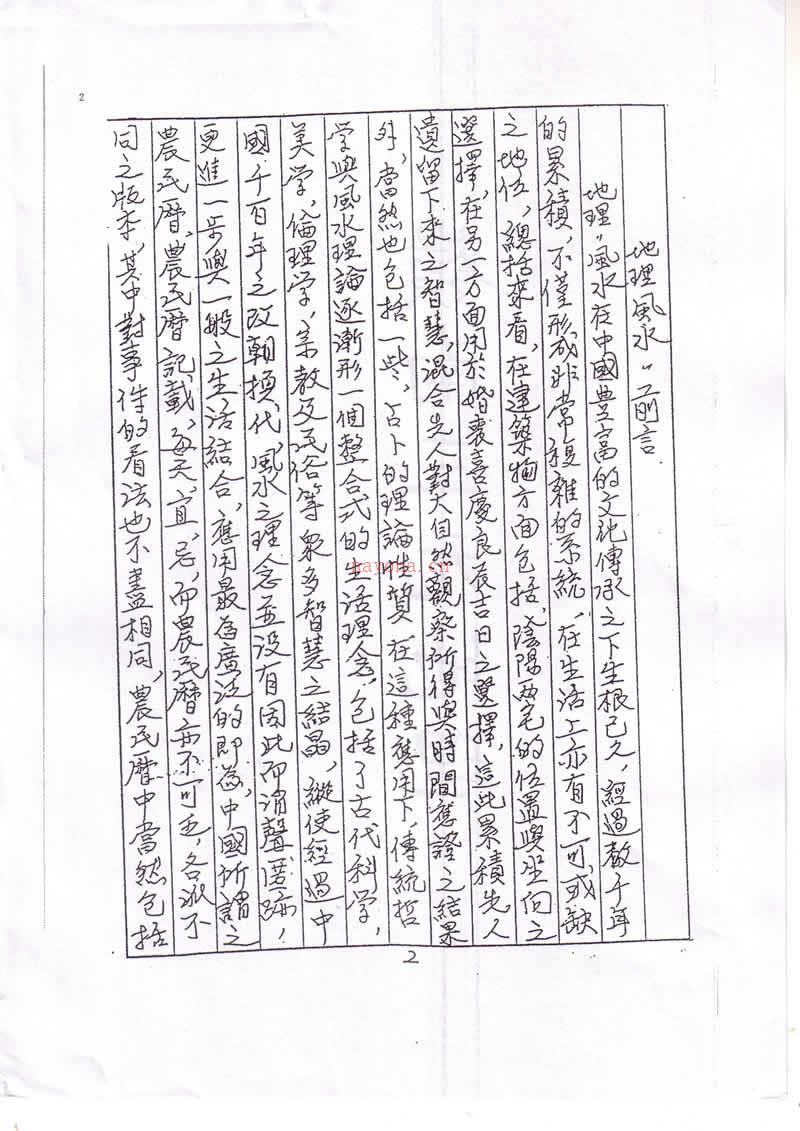 2
地理風水"前言
地理"風水在中國豊富的文化傳承之下生根已久，經過数千年
的累積，不僅形成非常複雜的系統、在生活上亦有不可或缺
之地位，總括來看，在建築物方面包括，陰陽两宅的位置與坐向之
選擇，在另一方面用於婚喪喜慶良辰吉日之選擇，這此累積先人
遺留下來之智慧，混合先人對大自然觀察所得與時間應證之結果
外，當然也包括一些，占卜的理論性質，在這種應用下，傳統哲
学與風水理論逐漸形一個整合式的生活理念，包括了古代科学，
美学，倫理学，宗教及民俗等眾多智慧之結晶，縱使經過中
國千百年之改朝換代，風水之理念並没有因此而消聲匿跡，
更進一步與一般之生活結合，應用最為廣泛的即為，中國所謂之
農民曆，農民曆記載，每天，宜，忌，而農民曆亦不可毛，各派不
同之版本，其中對事件的看法也不盡相同，農民曆中當然包括
2
nayona.cn